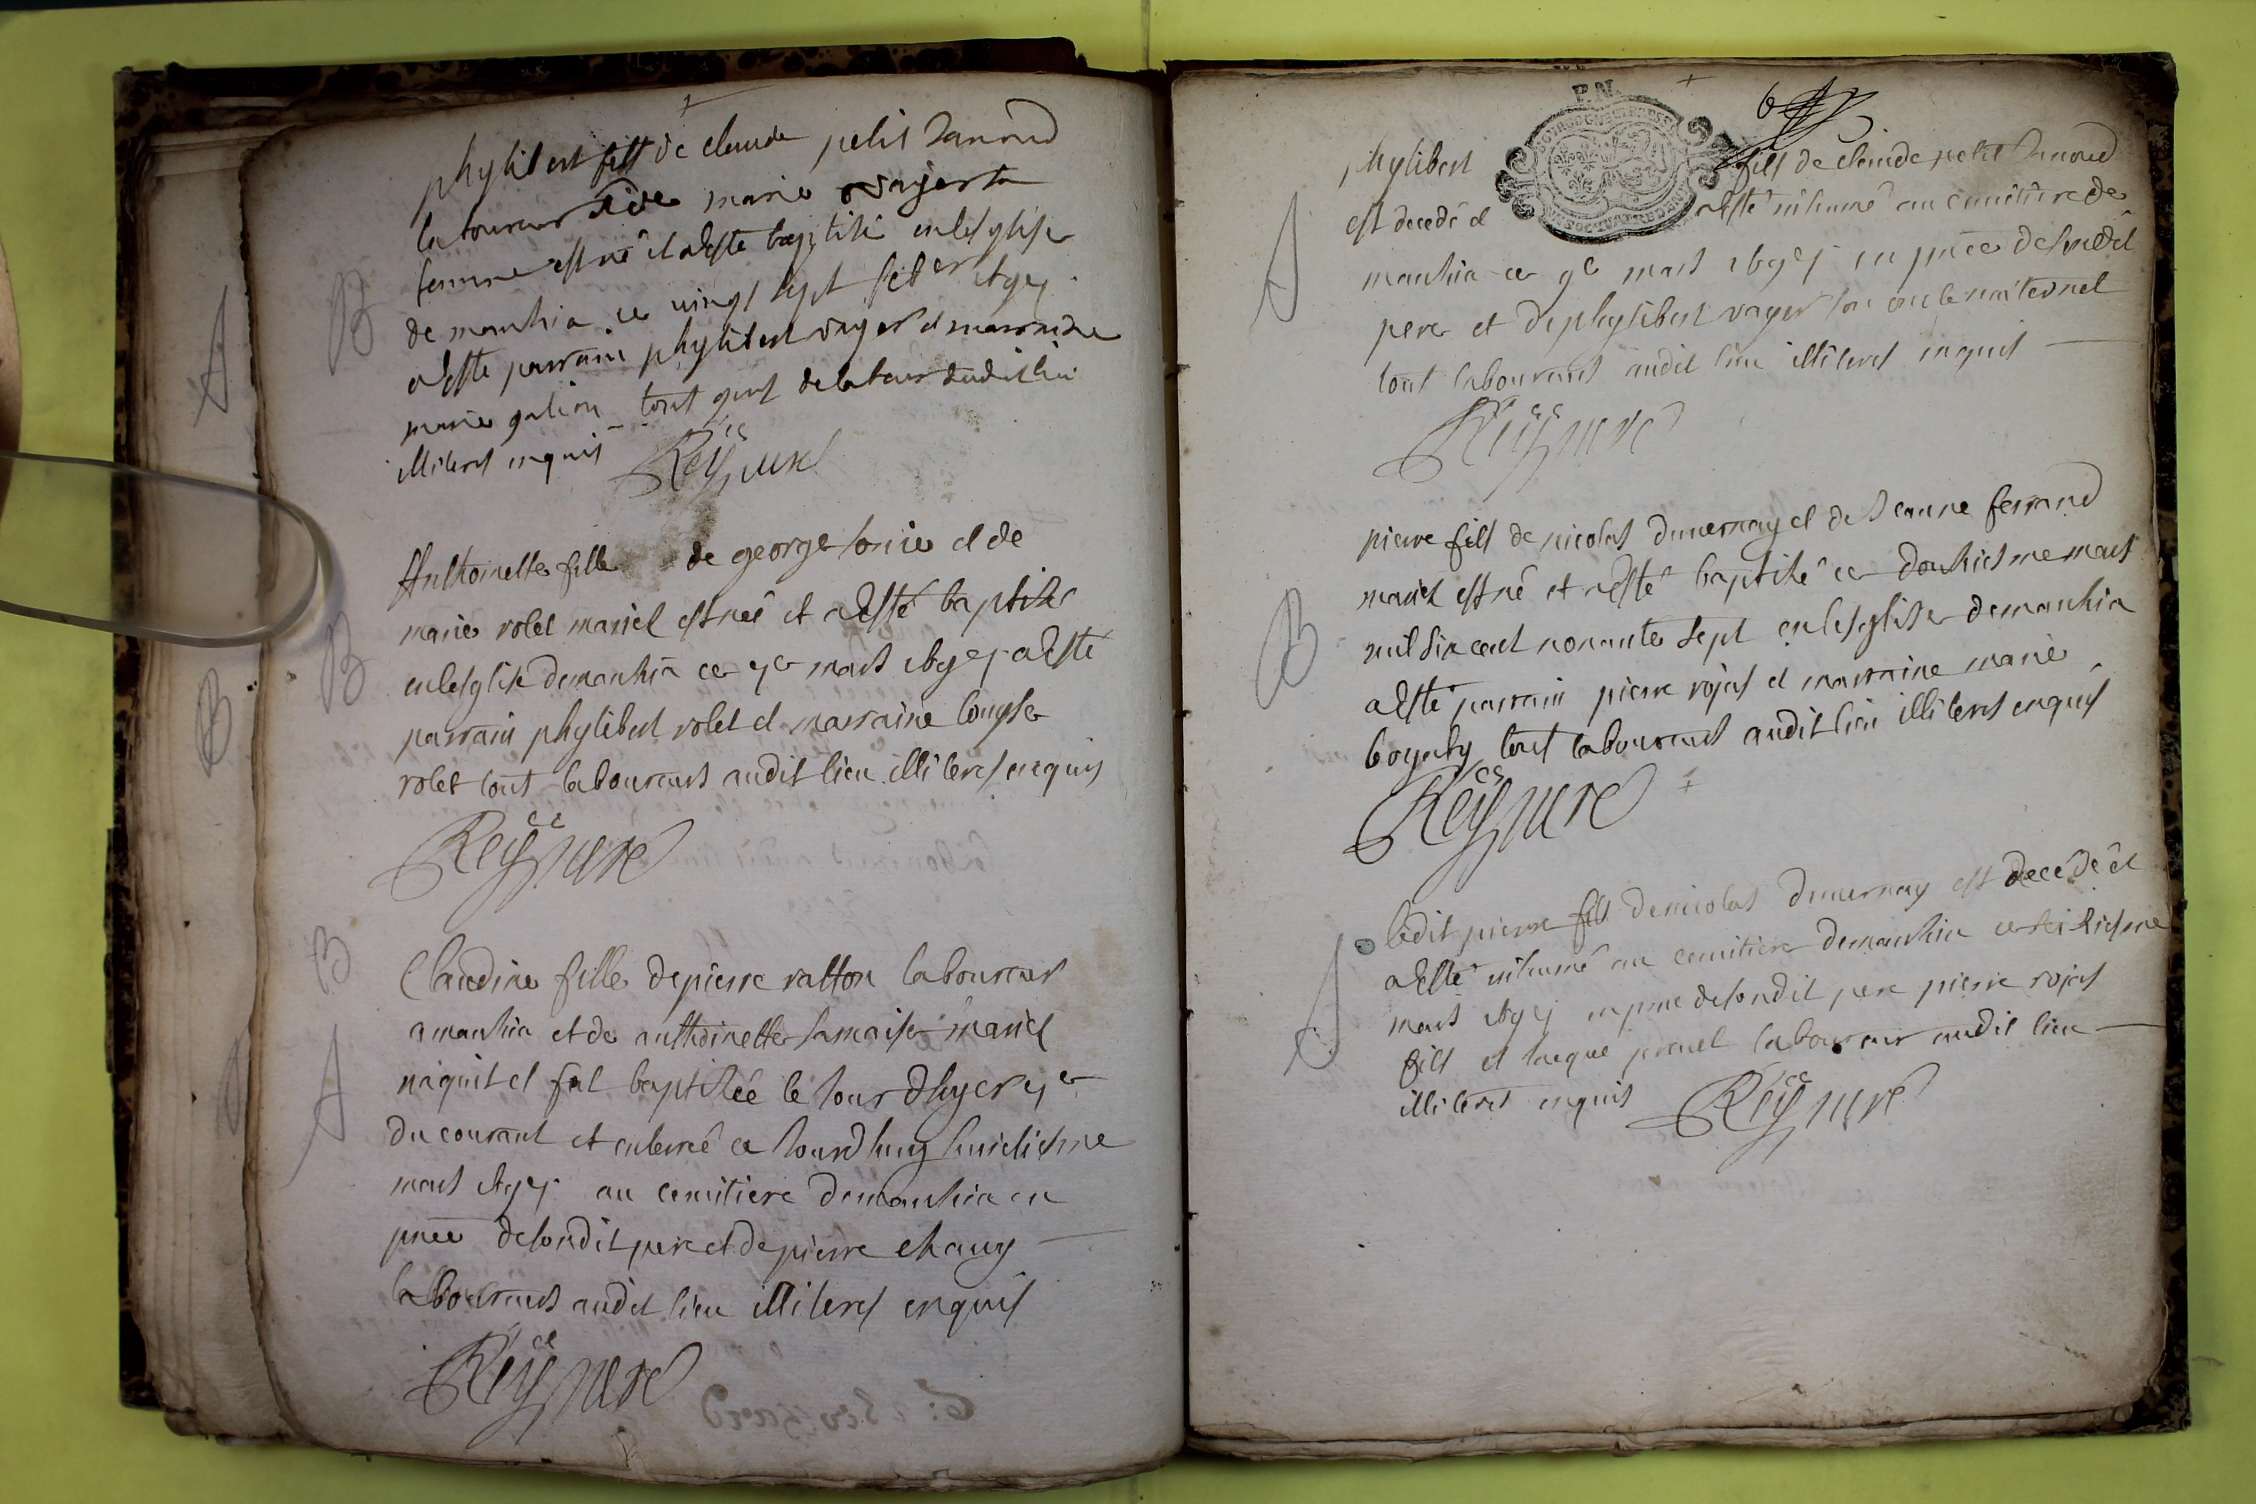 phylibert fils de claude petit Janoud
laboureur & de marie vayer sa
femme est né et a esté baptisé en lesglise
de manhia ce vingt sept feb^er
a esté parrain phylibert vayer et marraine
marie tout gens de labeur dudit lieu
illiteres enquis
Rey curé
B
Anthoinette fille de george et de
marie rolet mariés est née et a esté baptisée
en lesglise de manhia ce mars a esté
parrain phylibert rolet et marraine louyse
rolet tous laboureurs audit lieu illiteres enquis
Rey curé
B
Claudine fille de pierre ratton laboureur
a manhia et de anthoinette mariés
naquit et fut baptisée le Jour dhyer
du courant et enterré ce Jourdhuy
mars au cemitiere de manhia en
pnce de sondit pere et de pierre chavy
laboureurs audit lieu illiteres enquis
Rey curé
B
A
A
B
P.N.
6
phylibert fils de claude petit Janoud
est decedé et a esté inhumé au cemitiere de
manhia ce 9e mars en pnce de sondit
pere et de phylibert vayer son oncle maternel
tout laboureurs audit lieu illiteres enquis
Rey curé
A
pierre fils de nicolas duvernay et de Jeanne ferrand
mariés est né et a esté baptisé ce douziesme mars
mil six cent nonante sept en lesglise de manhia
a esté parrain pierre rojas et marraine marie
tout laboureurs audit lieu illiteres enquis
Rey curé
B
ledit pierre fils de nicolas duvernay est decedé et
a esté inhumé au cemitiere de manhia ce
mars en pnce de sondit pere pierre rojas
fils et Jacque laboureur audit lieu
illiteres enquis
Rey curé
A